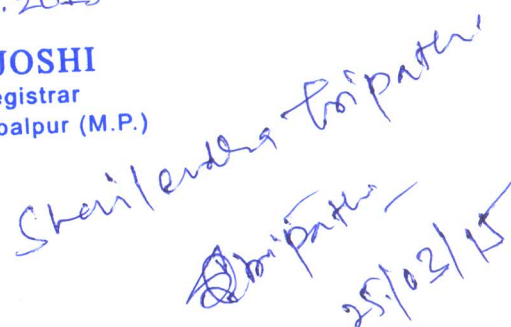 JOSHI
egistrar
balpur (M.P.)
Shailendra Tripathi
Tripathi
25/03/15